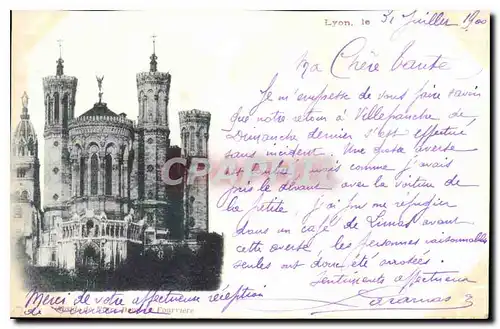 Lyon, le 31 Juillet 1900
Ma Chère tante
Je m'empresse de vous faire savoir
que notre retour à Villefranche de
Dimanche dernier s'est effectué
sans incident. Une averse
mais comme j'avais
pris le devant avec la voiture de
la petite j'ai pu me réfugier
dans un café de Limas avant
cette averse, les personnes raisonnables
seules ont donc été arrosées.
Sentiments affectueux
Merci de votre affectueuse réception
de Dimanche
Fourvière
CPA